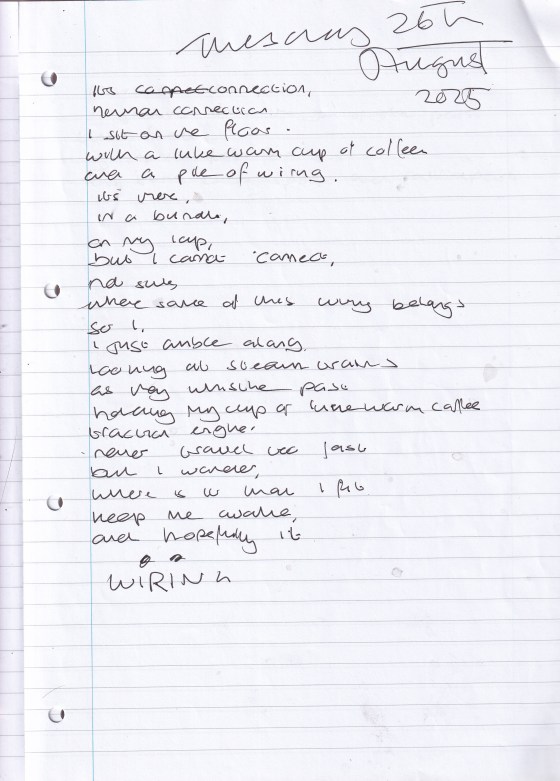 Tuesday 26th
August
2025
its connection,
human connection
I sit on the floor.
with a luke warm cup of coffee
and a pile of wiring.
its there,
in a bundle,
on my lap,
but I cannot connect,
not sure
where some of this wiring belongs
so I,
I just amble along
looking at steam trains
as they whistle past
holding my cup of luke warm coffee
traction engine.
never travel too fast
but I wonder,
where is it that I fit
keep me awake,
and hopefully it
WIRING